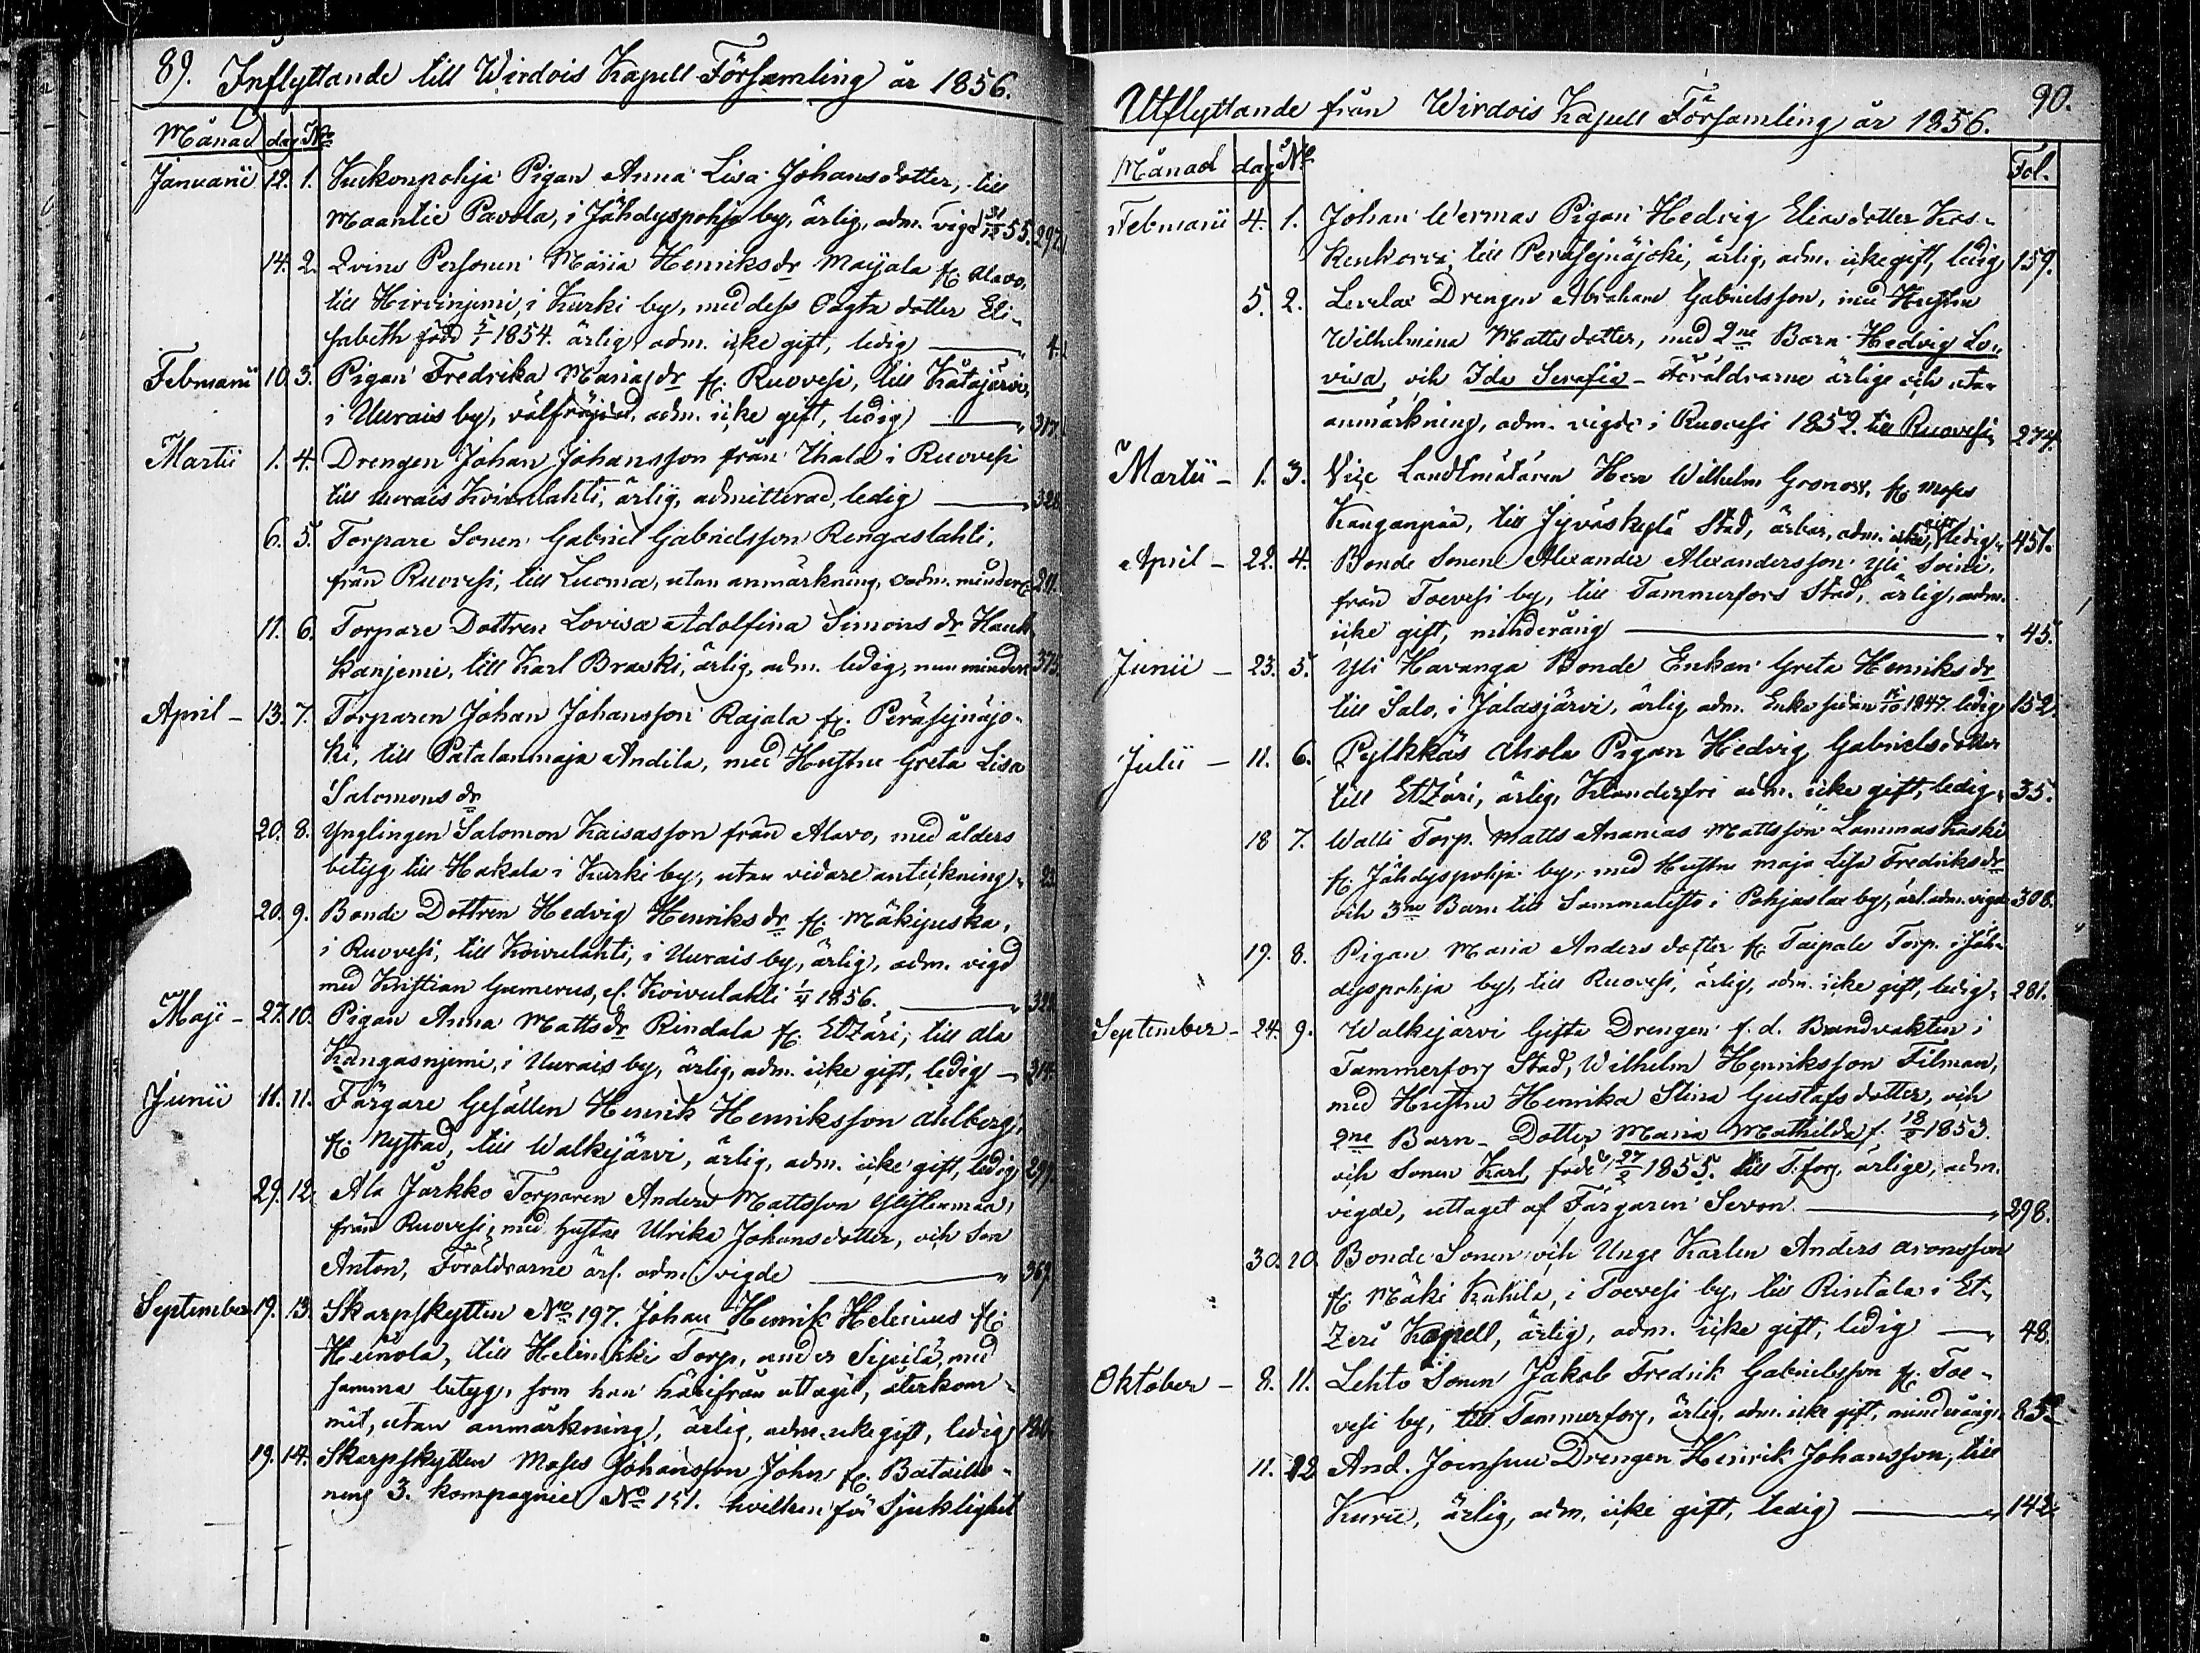 89. Inflyttande till Wirdois Kapell Församling år 1856.
Månad dag No
Januarii 12. 1. Kuckonpohja Pigan Anna Lisa Johansdotter, till
Maantie Pavola, i Jähdyspohja by, ärlig, adm. vigd 31/12 55. 297.
14. 2. Qvins Personen Maria Henriksdr Maijala fr. Alavo,
till Hirvinjemi, i Kurki by, med dess oägta dotter Eli-
sabeth född 1854. ärlig adm. icke gift, ledig 4.
Februarii 10. 3. Pigan Fredrika Mariasdr fr. Ruovesi, till Katajärvi,
i Uurais by, välfräjdad, adm. icke gift, ledig 317.
Martii 1. 4. Drengen Johan Johansson från Ihala i Ruovesi
till Uurais Koivulahti, ärlig, admitterad, ledig 328
6. 5. Torpare Sonen Gabriel Gabrielsson Rengaslahti,
från Ruovesi, till Luoma, utan anmärkning, adm. minderå. 211.
11. 6. Torpare Dottren Lovisa Adolfina Simonsdr Hauk
kanjemi, till Karl Braski, ärlig, adm. ledig, men minder. 375.
April - 13. 7. Torparen Johan Johansson Rajala fr. Peräseinäjo-
ki, till Patalanmaja Andila, med Hustru Greta Lisa
Salomonsdr
20. 8. Ynglingen Salomon Kaisasson från Alavo, med ålders
betyg till Hakala i Kurki by, utan vidare anteckning 23.
20. 9. Bonde Dottren Hedvig Henriksdr fr. Mäkipuska,
i Ruovesi, till Koivulahti, i Uurais by, ärlig, adm. vigd
med Kristian Gumerus, Koivulahti 1/4 1856. 328
Maji - 27. 10. Pigan Anna Mattsdr Rindala fr. Etzäri, till Ala
Kangasnjemi, i Uurais by, ärlig, adm. icke gift, ledig 314.
Junii 11. 11. Färgare Gesällen Henrik Henriksson Ahlberg,
fr. Nystad, till Walkejärvi, ärlig, adm. icke gift, ledig 299.
29. 12. Ala Jarkko Torparen Anders Mattsson
från Ruovesi, med hustru Ulrika Johansdotter, och Son
Anton, Föräldrarne ärl. adm. vigde 369.
September 19. 13. Skarpskytten No 197. Johan Henrik Helenius fr.
Heinola, till Helinikki Torp, under Sipilä, med
samma betyg, som han härifrån uttagit, återkom-
mit, utan anmärkning, ärlig, adm. icke gift, ledig 180.
19. 14. Skarpskytten Moses Johansson John fr. Batailio-
nens 3. kompagnie No 151. hvilken för Sjuklighet
Utflyttande från Wirdois Kapell Församling år 1856. 90.
Månad dag No Fol.
Februarii 4. 1. Johan Wermas Pigan Hedvig Eliasdotter Kos-
kenkorva, till Peräseinäjoki, ärlig, adm. icke gift, ledig 159.
5. 2. Levelax Drengen Abraham Gabrielsson, med Hustru
Wilhelmina Mattsdotter, med 2ne Barn Hedvig Lo-
visa, och Ida Serafia - Föräldrarne ärlige och utan
anmärkning, adm. vigde i Ruovesi 1852. till Ruovesi, 274.
Martii - 1. 3. Vice Landtmätaren Herr Wilhelm Gronow, fr. Moses
Kanganpää, till Jyväskylä Stad, ärbar, adm. icke gift, ledig 457.
April - 22. 4. Bonde Sonen Alexander Alexandersson Yli Soini,
från Toevesi by, till Tammerfors Stad, ärlig, adm.
icke gift, minderårig 45.
Junii - 23. 5. Yli Havanga Bonde Enkan Greta Henriksdr
till Salo, i Jalasjärvi, ärlig adm. Enka sedan 1847. ledig 152.
Julii - 11. 6. Pylkkäs Ahola Pigan Hedvig Gabrielsdotter
till Etzäri, ärlig, Klanderfri adm. icke gift, ledig 35.
18 7. Walli Torp. Matts Ananias Mattsson Lammaskoski
fr. Jähdyspohja by, med Hustru Maja Lisa Fredriksdr
och 3ne Barn till Sammalisto i Pohjaslax by, ärl. adm. vigde 308.
19. 8. Pigan Maria Andersdotter fr. Taipale Torp. i Jäh-
dyspohja by, till Ruovesi, ärlig, adm. icke gift, ledig 281.
September - 24. 9. Walkejärvi Gifta Drengen f.d. Brandvakten i
Tammerfors Stad, Wilhelm Henriksson Filman,
med Hustru Henrika Stina Gustafsdotter, och
2ne Barn - Dotter Maria Mathilda f. 1853.
och Sonen Karl, född 1855. till T.fors, ärlige, adm.
vigde, uttaget af Färgaren Sevon 298.
30. 10. Bonde Sonen och Unge Karlen Anders Aronsson
fr. Mäki Kahila, i Toevesi by, till Rintala i Et-
zeri Kapell, ärlig, adm. icke gift, ledig 48.
Oktober - 8. 11. Lehto Sonen Jakob Fredrik Gabrielsson fr. Toe-
vesi by, till Tammerfors, ärlig, adm. icke gift, minderårig 85.
11. 12 And. Joensuu Drengen Henrik Johansson, till
Kuru, ärlig, adm. icke gift, ledig 142.